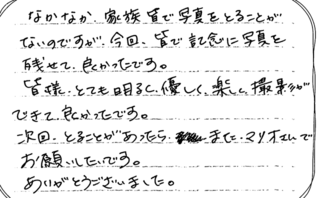 なかなか、家族皆で写真をとることが
ないのですが、今回、皆で記念に写真を
残せて、良かったです。
皆様、とても明るく、優しく、楽しく、撮影が
できて、良かったです。
次回、とることがあったら、また、マリオさんで
お願いしたいです。
ありがとうございました。